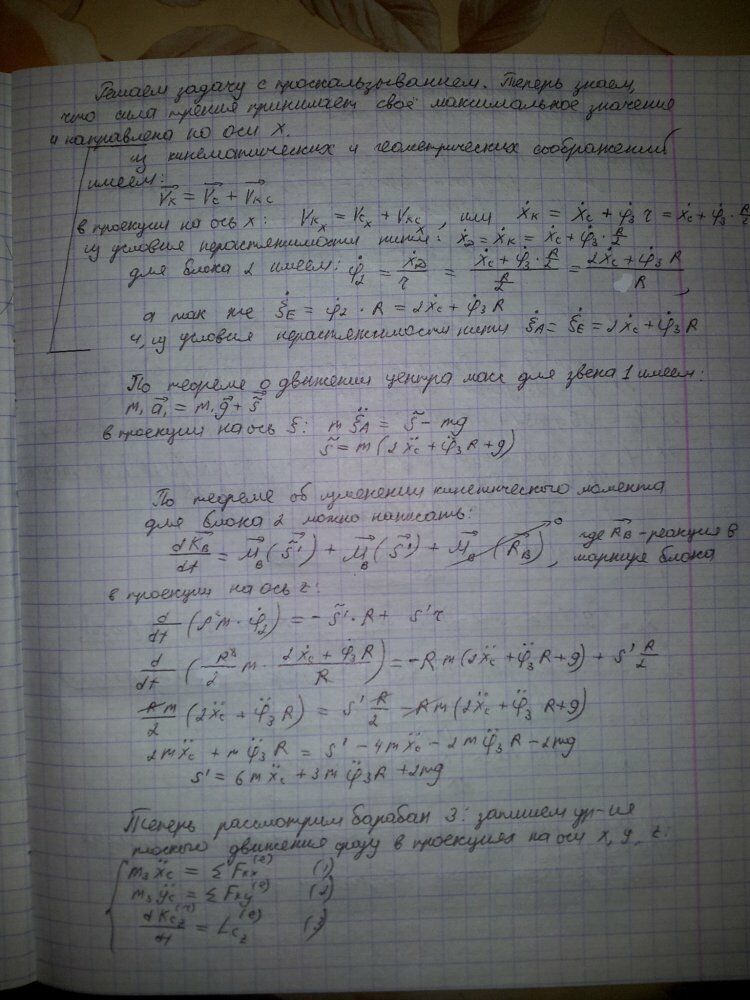 Решаем задачу с проскальзыванием. Теперь знаем,
что сила трения принимает своё максимальное значение
и направлена по оси x.
из кинематических и геометрических соображений
имеем:
V⃗_K = V⃗_C + V⃗_KC
в проекции на ось x: V_Kx = V_Cx + V_KCx, или ẋ_K = ẋ_C + φ̇_3 r = ẋ_C + φ̇_3 · R/2
из условия нерастяжимости нити: ẋ_D = ẋ_K = ẋ_C + φ̇_3 · R/2
для блока 2 имеем: φ̇_2 = ẋ_D/r = (ẋ_C + φ̇_3 · R/2)/(R/2) = (2ẋ_C + φ̇_3 R)/R,
а так же ξ̇_E = φ̇_2 · R = 2ẋ_C + φ̇_3 R
и, из условия нерастяжимости нити ξ̇_A = ξ̇_E = 2ẋ_C + φ̇_3 R
По теореме о движении центра масс для звена 1 имеем:
m_1 a⃗_1 = m_1 g⃗ + S̃⃗
в проекции на ось ξ: m ξ̈_A = S̃ - mg
S̃ = m(2ẍ_C + φ̈_3 R + g)
По теореме об изменении кинетического момента
для блока 2 можно написать:
dK⃗_B/dt = M⃗_B(S̃⃗') + M⃗_B(S⃗') + M⃗_B(R⃗_B) 0, где R⃗_B - реакция в
шарнире блока
в проекции на ось z:
d/dt (ρ² m · φ̇_2) = - S̃' · R + S' r
d/dt (R²/2 m · (2ẋ_C + φ̇_3 R)/R) = -R m (2ẍ_C + φ̈_3 R + g) + S' R/2
Rm/2 (2ẍ_C + φ̈_3 R) = S' R/2 - Rm(2ẍ_C + φ̈_3 R + g)
2mẍ_C + mφ̈_3 R = S' - 4mẍ_C - 2mφ̈_3 R - 2mg
S' = 6mẍ_C + 3mφ̈_3 R + 2mg
Теперь рассмотрим барабан 3: запишем ур-ия
плоского движения сразу в проекциях на оси x, y, z:
m_3 ẍ_C = Σ F_kx^(e) (1)
m_3 ÿ_C = Σ F_ky^(e) (2)
dK_Cz^(r)/dt = L_Cz^(e) (3)